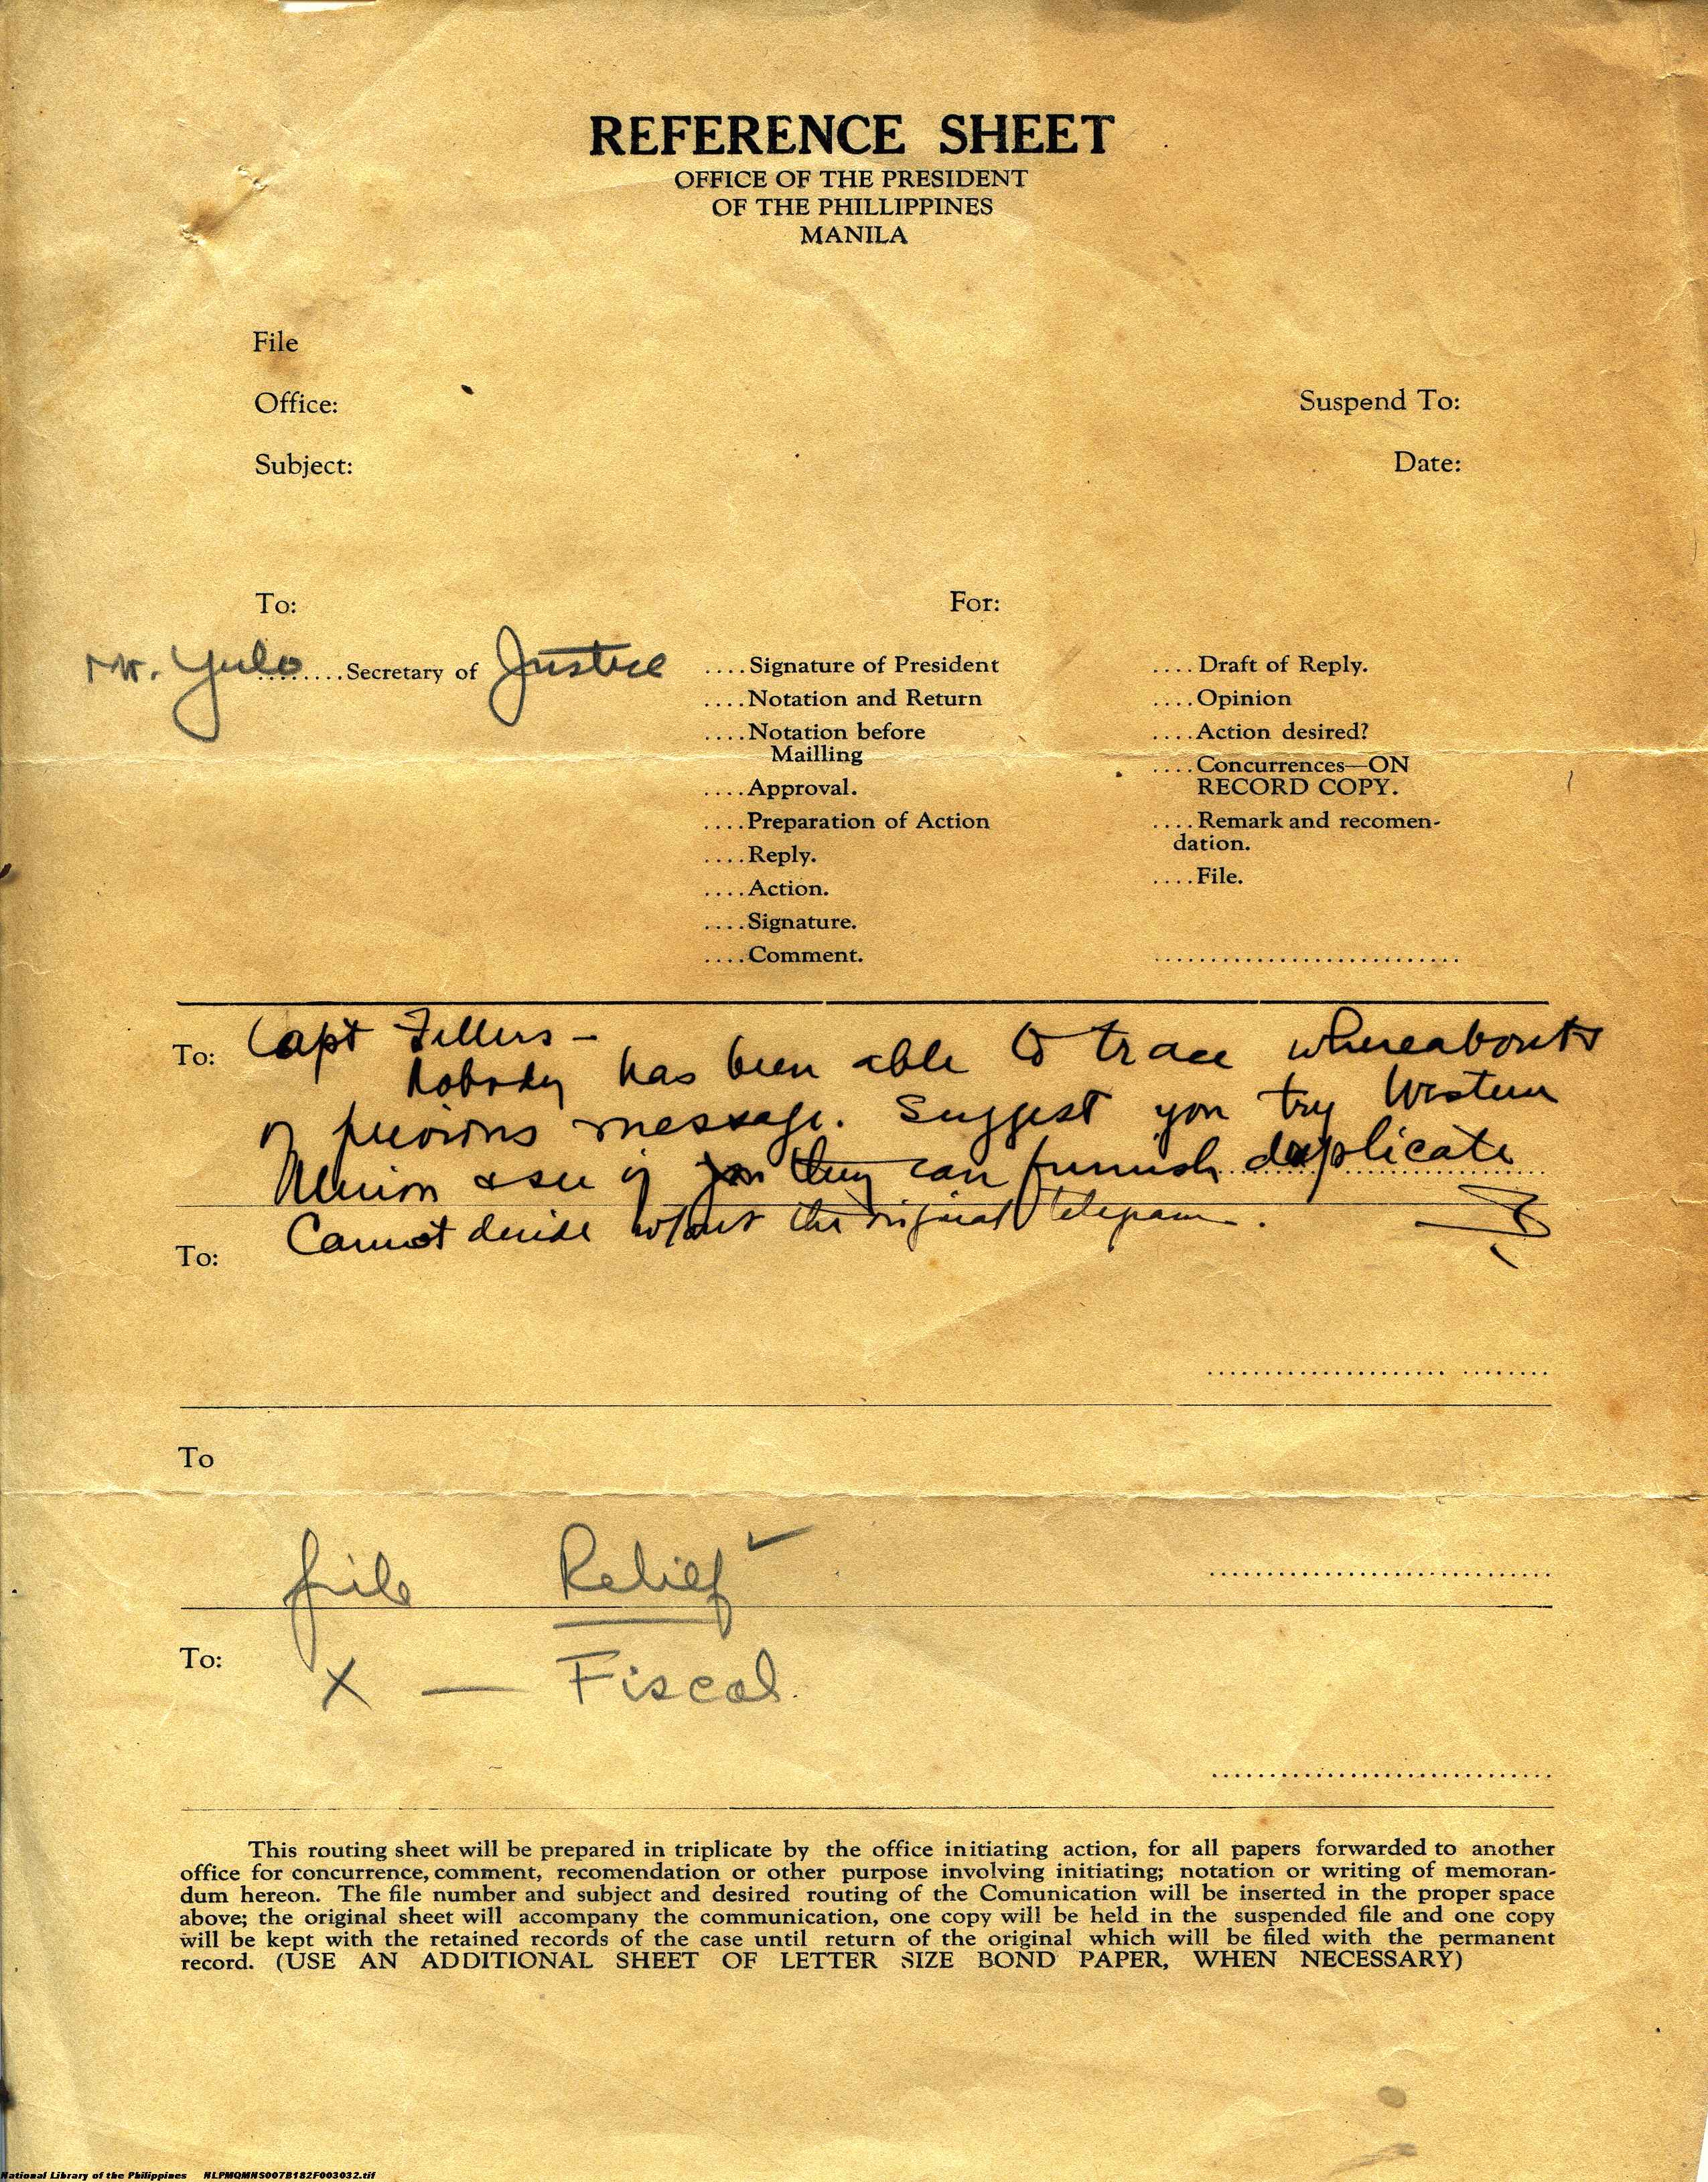 REFERENCE SHEET
OFFICE OF THE PRESIDENT
OF THE PHILLIPPINES
MANILA
File
Office:
Suspend To:
Subject:
Date:
To:
For:
Mr. Yulo ........Secretary of Justice
....Signature of President
....Notation and Return
....Notation before
Mailling
....Approval.
....Preparation of Action
....Reply.
....Action.
....Signature.
....Comment.
....Draft of Reply.
....Opinion
....Action desired?
....Concurrences—ON
RECORD COPY.
....Remark and recomen-
dation.
....File.
To: Capt Fellers –
Nobody has been able to trace whereabouts
of previous message. Suggest you try Western
Union & see if you they can furnish duplicate
To: Cannot decide without the original telegram.
To
file Relief
To:
X — Fiscal.
This routing sheet will be prepared in triplicate by the office initiating action, for all papers forwarded to another
office for concurrence, comment, recomendation or other purpose involving initiating; notation or writing of memoran-
dum hereon. The file number and subject and desired routing of the Comunication will be inserted in the proper space
above; the original sheet will accompany the communication, one copy will be held in the suspended file and one copy
will be kept with the retained records of the case until return of the original which will be filed with the permanent
record. (USE AN ADDITIONAL SHEET OF LETTER SIZE BOND PAPER, WHEN NECESSARY)
National Library of the Philippines NLPMQMNS007B182F003032.tif